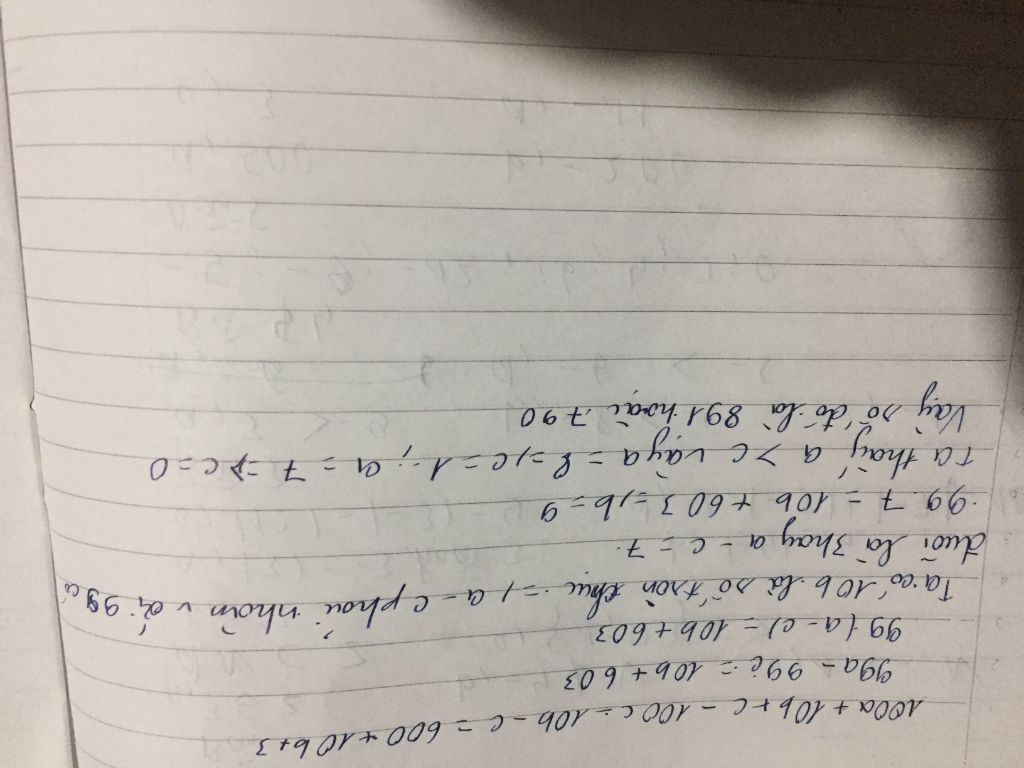 100a + 10b + c - 100c - 10b - c = 600 + 10b + 3
99a - 99c = 10b + 603
99(a - c) = 10b + 603
Ta có 10b là số tròn chục => a - c phải nhân với 99 có
đuôi là 3 hay a - c = 7.
99. 7 = 10b + 603 => b = 9
Ta thấy a > c vậy a = 8 => c = 1; a = 7 => c = 0
Vậy số đó là 891 hoặc 790